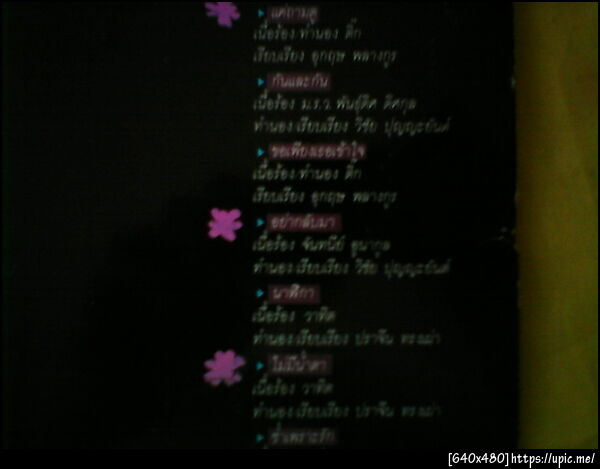 แค่ถามดู
เนื้อร้อง ทำนอง ติ๊ก
เรียบเรียง อุกฤษ พลางกูร
กันและกัน
เนื้อร้อง ม.ร.ว. พันธุ์ดิศ ดิศกุล
ทำนอง เรียบเรียง วิชัย ปุญญะยันต์
ขอเพียงเธอเข้าใจ
เนื้อร้อง ทำนอง ติ๊ก
เรียบเรียง อุกฤษ พลางกูร
อย่ากลับมา
เนื้อร้อง จันทนีย์ อูนากูล
ทำนอง เรียบเรียง วิชัย ปุญญะยันต์
นาฬิกา
เนื้อร้อง วาทิต
ทำนอง เรียบเรียง ปราจีน ทรงเผ่า
ไม่มีน้ำตา
เนื้อร้อง วาทิต
ทำนอง เรียบเรียง ปราจีน ทรงเผ่า
ช้ำเพราะรัก
[640x480]https://upic.me/